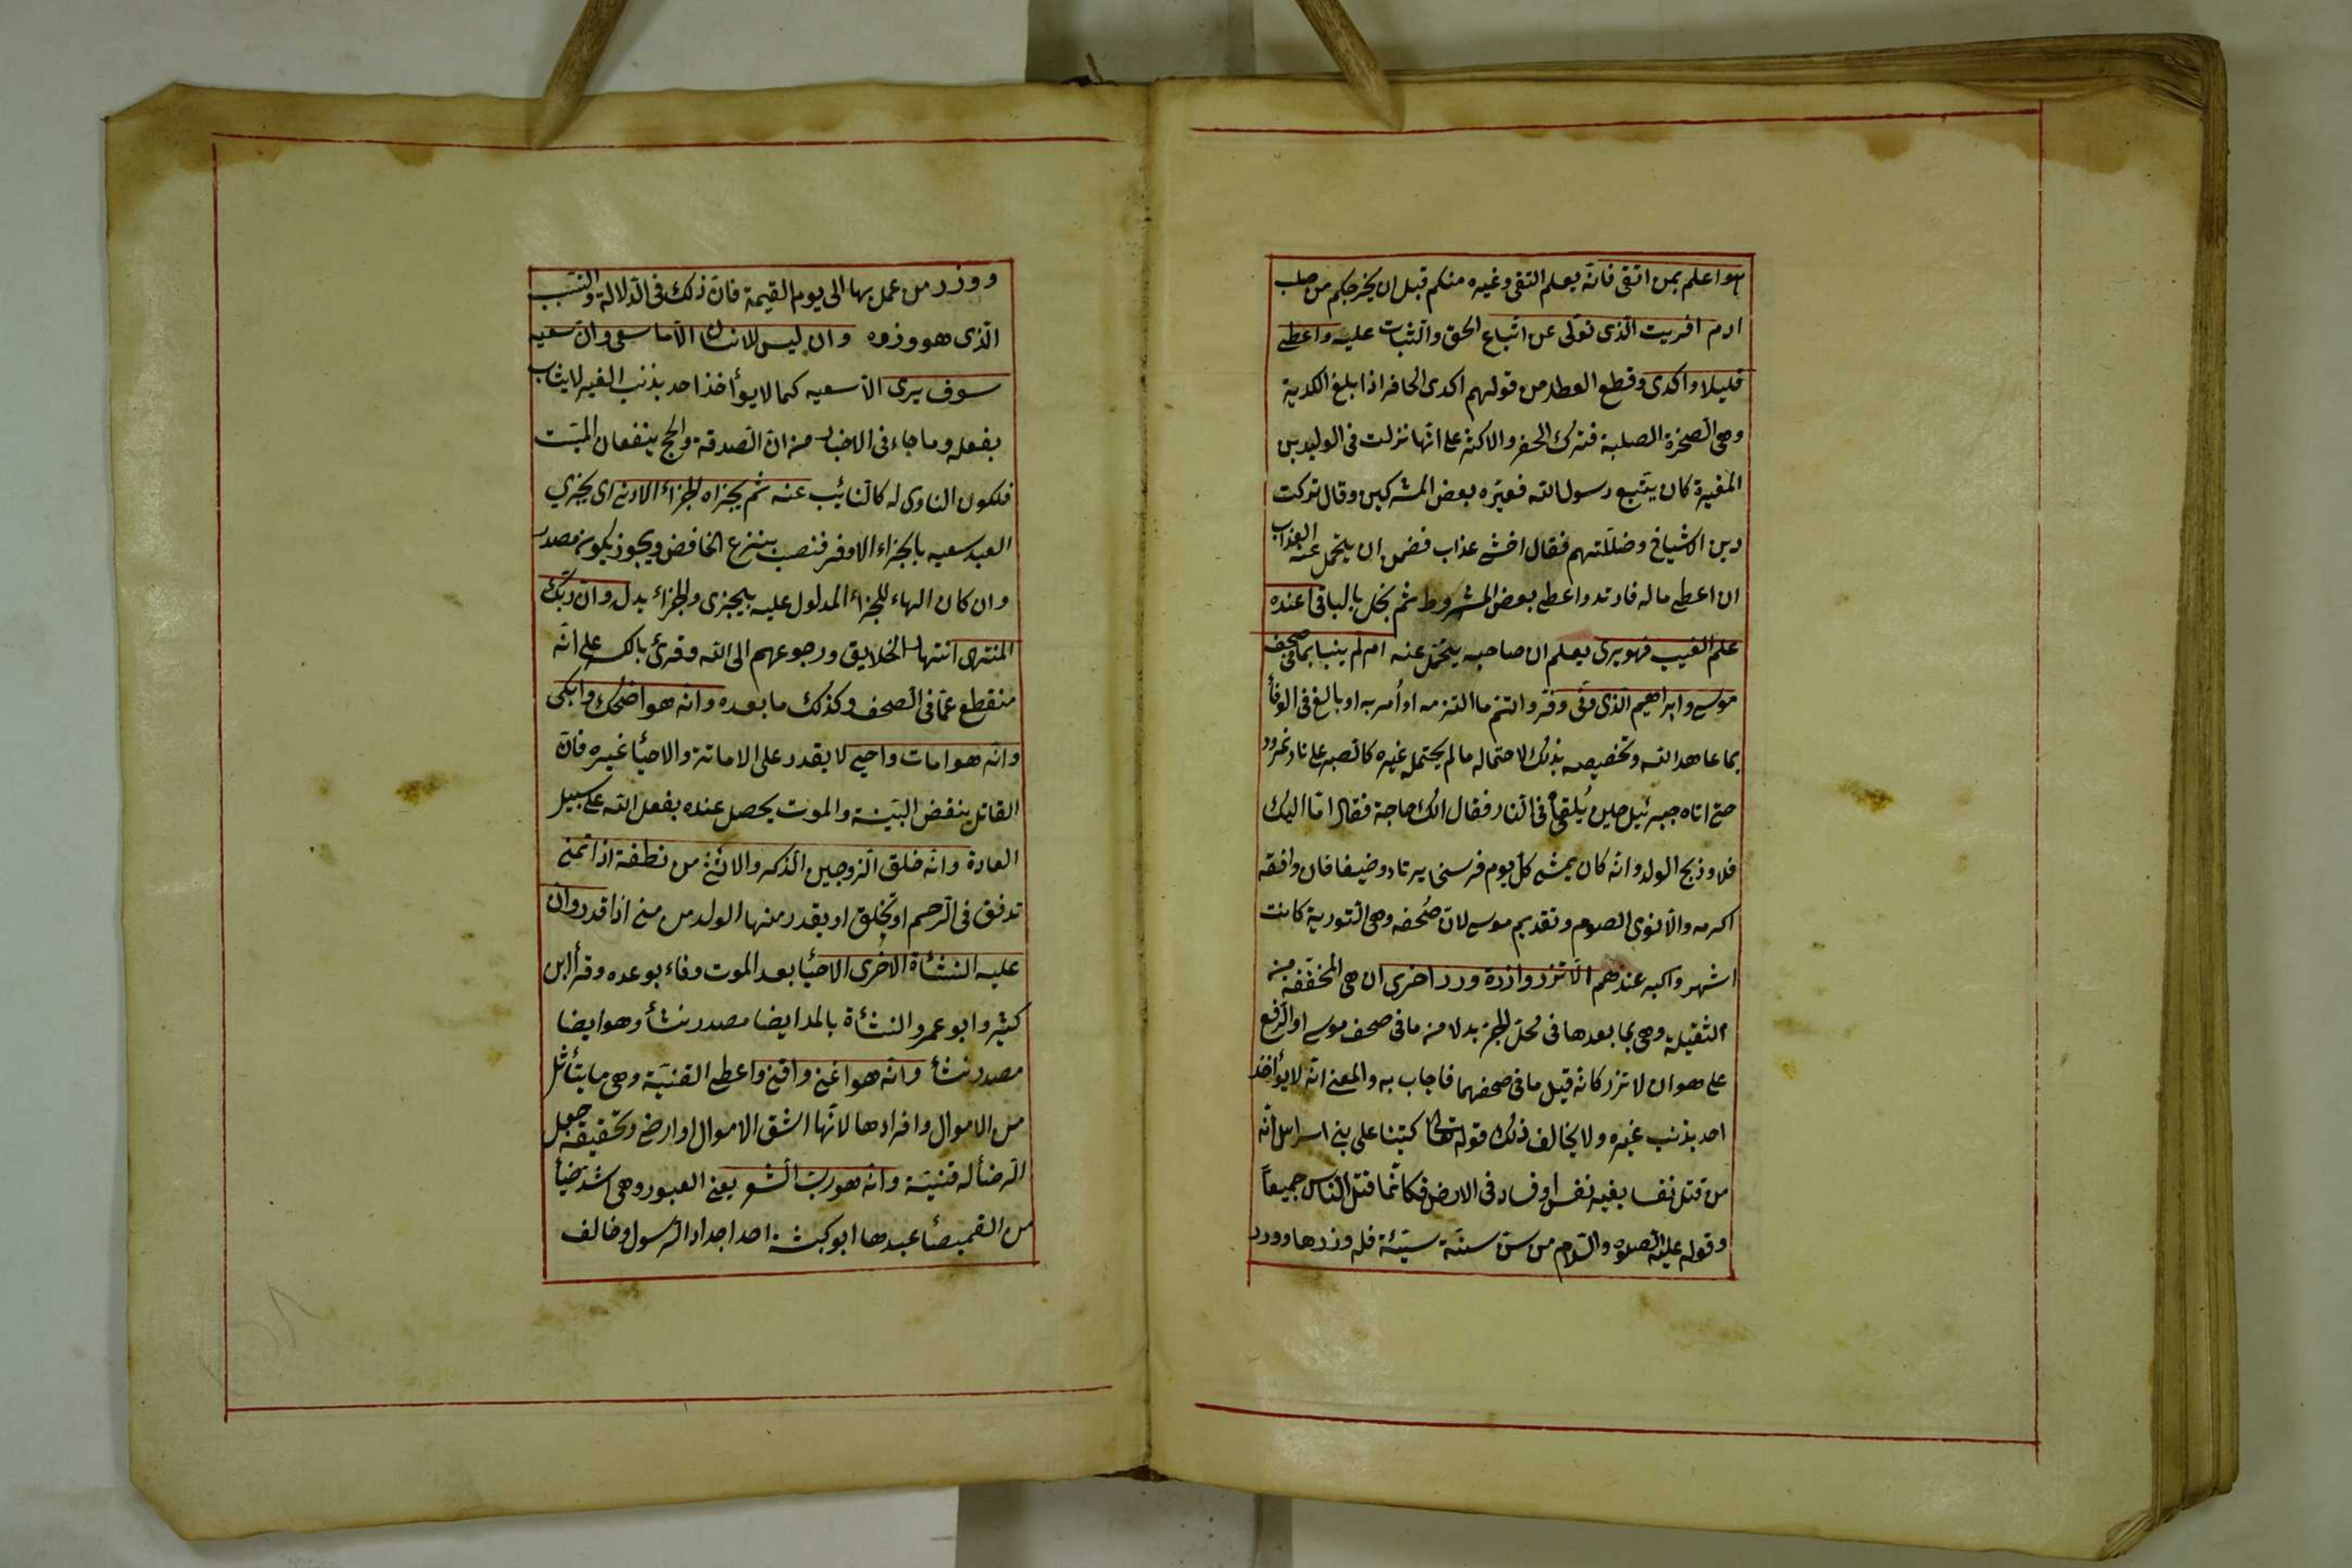 هوا علم بمن اتقى فانّه يعلم التقى وغيره منكم قبل ان يخرجكم من صلب
ادم افريت الّذى تولّى عن اتّباع الحق والثبات عليه واعطى
قليلا واكدى وقطع العطاء من قولهم اكدى الحافر اذا بلغ الكدية
وهى الصخرة الصلبة فترك الحفر والاكثر على انّها نزلت فى الوليد بن
المغيرة كان يتبع رسول الله فعيّره بعض المشركين وقال تركت
دين الاشياخ وضللتهم فقال اخشى عذاب فضمن ان يتحمل عنه العذاب
ان اعطى ماله فارتد واعطى بعض المشروط ثم بخل بالباقى اعنده
علم الغيب فهو يرى يعلم ان صاحبه يتحمّل عنه ام لم ينبا بما فى صحف
موسى وابراهيم الّذى وفّى وفّر واتمّ ما التزمه او أمر به او بالغ فى الوفأ
بما عاهد الله وتخصيصه بذلك لاحتماله ما لم يحتمله غيره كالصبر على نار نمرود
حتى اتاه جبرئيل حين يُلقى فى النار فقال الك حاجة فقال امّا اليك
فلا وذبح الولد وانّه كان يمشى كلّ يوم فرسخا يرتاد ضيفا فان وافقه
اكرمه والّا نوى الصوم وتقديم موسى لانّ صُحفه وهى التورية كانت
اشهر واكبر عندهم الّا تزر وازرة وزر اخرى ان هى المخففة من
الثقيلة وهى بما بعدها فى محلّ الجرّ بدلا من ما فى صحف موسى او الرفع
على هو ان لا تزر كانه قيل ما فى صحفهما فاجاب به والمعنى انّه لا يؤاخذ
احد بذنب غيره ولا يخالف ذلك قوله تعالى كتبنا على بنى اسرائل انّه
من قتل نفسا بغير نفس او فساد فى الارض فكانّما قتل النّاس جميعاً
وقوله عليه الصلوة والسّلام من سنّ سنّة سيّئة فله وزرها ووزر
ووزر من عمل بها الى يوم القيمة فانّ ذلك فى الدّلالة والتسبب
الّذى هو وزره وان ليس للانسان الّا ما سعى وانّ سعيه
سوف يرى الّا سعيه كما لا يؤاخذ احد بذنب الغير لا يثاب
بفعله وما جاء فى الاخبار من انّ الصّدقة والحج ينفعان الميّت
فلكون الناوى له كالنائب عنه ثم يجزاه الجزاء الاوفى اى يجزى
العبد سعيه بالجزاء الاوفر فنصب بنزع الخافض ويجوز يكون مصدر
وان كان الهاء للجزاء المدلول عليه بيجزى والجزاء بدل وان ربّك
المنتهى انتهاء الخلايق ورجوعهم الى الله وقرئ بالكسر على انّه
منقطع عمّا فى الصحف وكذلك ما بعده وانه هو اضحك وابكى
وانّه هو امات واحيى لا يقدر على الاماتة والاحيأ غيره فانّ
القاتل ينقض البنية والموت يحصل عنده بفعل الله على سبيل
العادة وانّه خلق الزوجين الذكر والانثى من نطفة اذا تمنى
تدفق فى الرحم او تخلق او يقدر منها الولد من منى اذا قدر وان
عليه النشأة الاخرى الاحيأ بعد الموت وفاء بوعده وقرأ ابن
كثير وابو عمرو النشأة بالمد ايضا مصدر نشأ وهو ايضا
مصدر نشأ وانّه هو اغنى واقنى واعطى القنية وهى ما يتأثل
من الاموال وافرادها لانّها اشق الاموال او ارضى وتحقيقه جعل
الرضأ له قنية وانّه هو ربّ الشعر يعنى العبور وهى اشدّ ضيأ
من القميصأ عبدها ابو كبشة احد اجداد الرسول وخالف